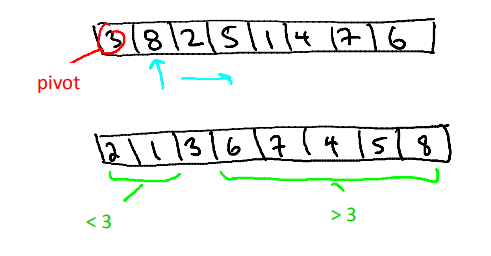 3 8 2 5 1 4 7 6
pivot
2 1 3 6 7 4 5 8
< 3
> 3